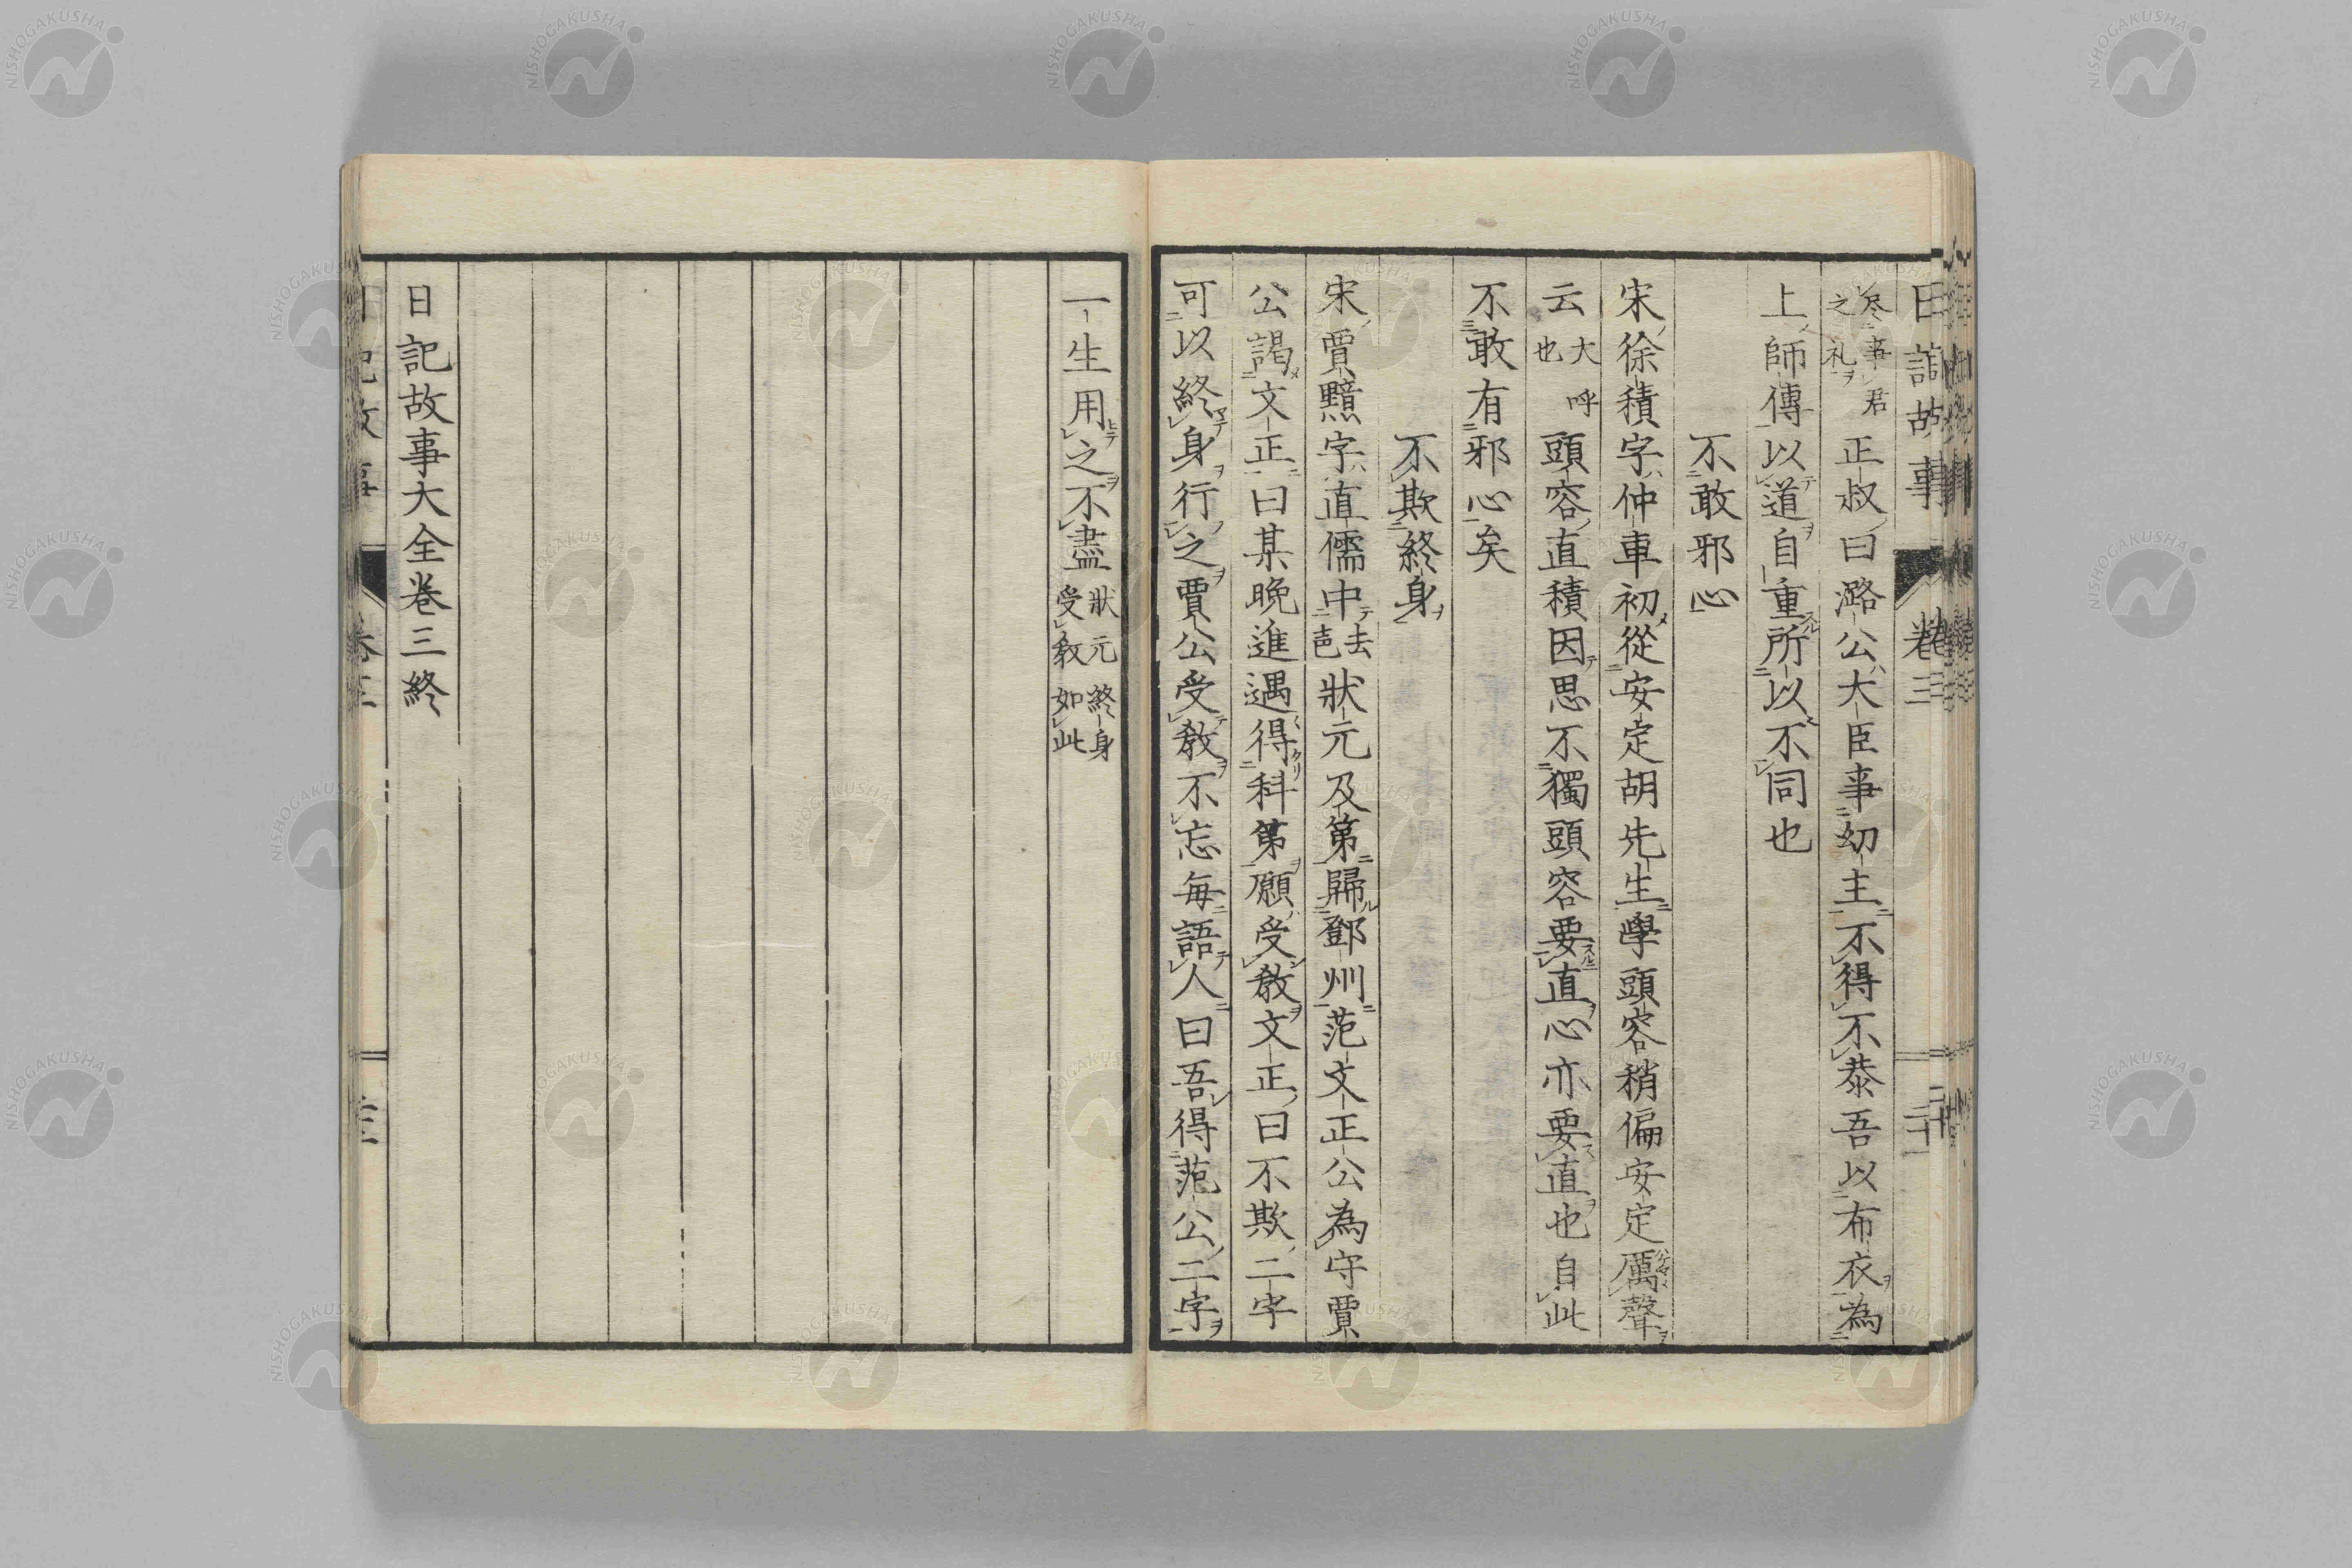 日記故事 卷三 二十二
尽事君之礼正叔曰潞公大臣事幼主不得不恭吾以布衣為
上師傳以道自重所以不同也
不敢邪心
宋徐積字仲車初從安定胡先生學頭容稍偏安定厲聲
云大呼也頭容直積因思不獨頭容要直心亦要直也自此
不敢有邪心矣
不欺終身
宋賈黯字直儒中去声狀元及第歸鄧州范文正公為守賈
公謁文正曰某晚進遇得科第願受教文正曰不欺二字
可以終身行之賈公受教不忘每語人曰吾得范公二字
一生用之不盡狀元終身受教如此
日記故事大全卷三終
NISHOGAKUSHA